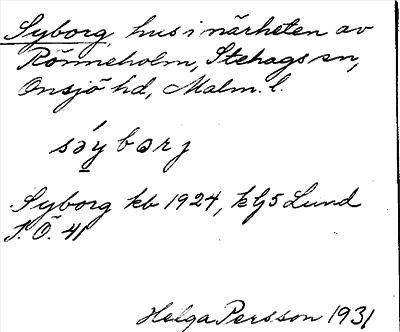 Syborg, hus i närheten av
Rönneholm, Stehags sn,
Onsjö hd, Malm. l.
sǝ́y bǝrj
Syborg kb 1924, kG5 Lund
S. Ö. 41
Helga Persson 1931